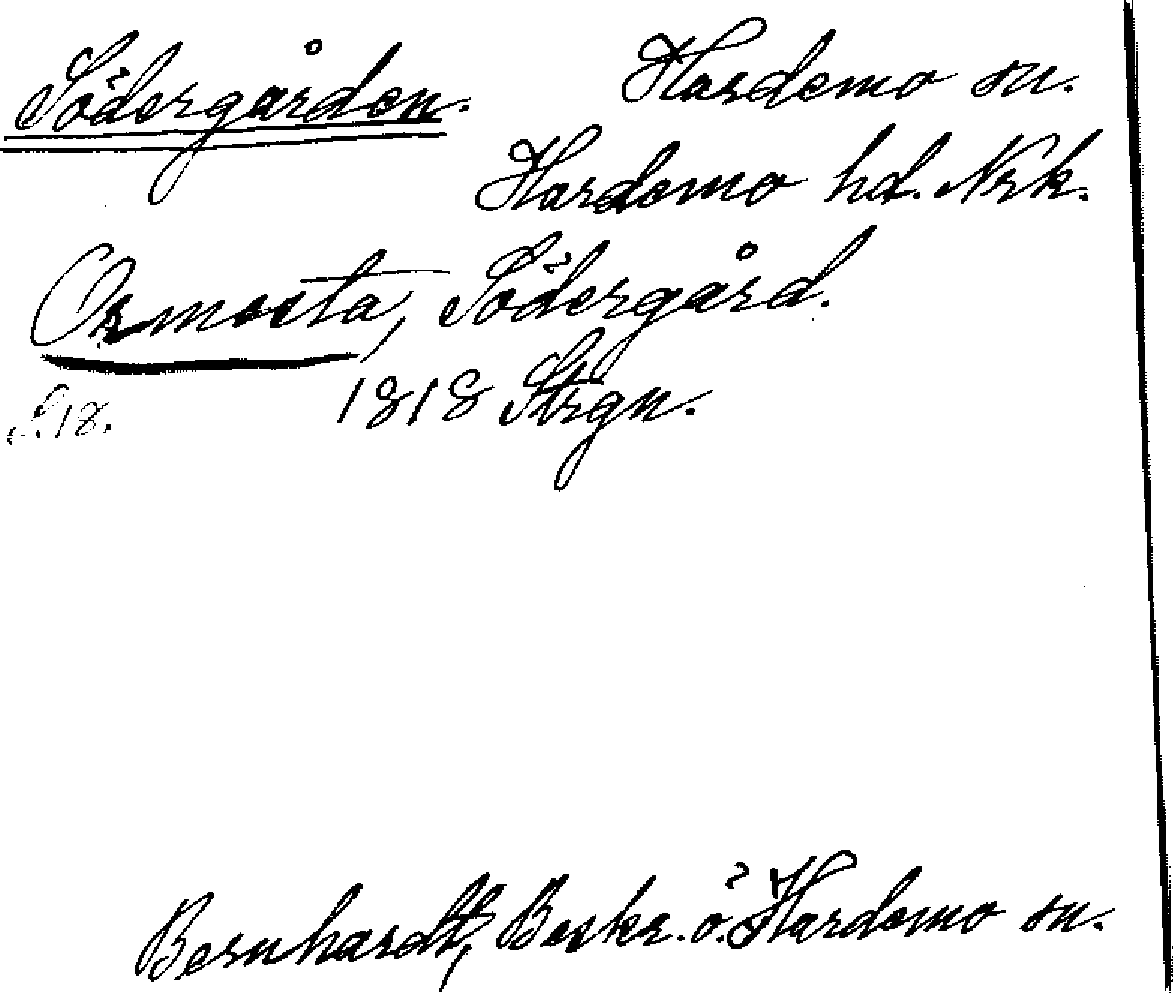 Södergården. Hardemo sn.
Hardemo hd. Nrk.
Ormesta, Södergård.
S. 18. 1818 Strgn.
Bernhardt, Beskr. ö. Hardemo sn.